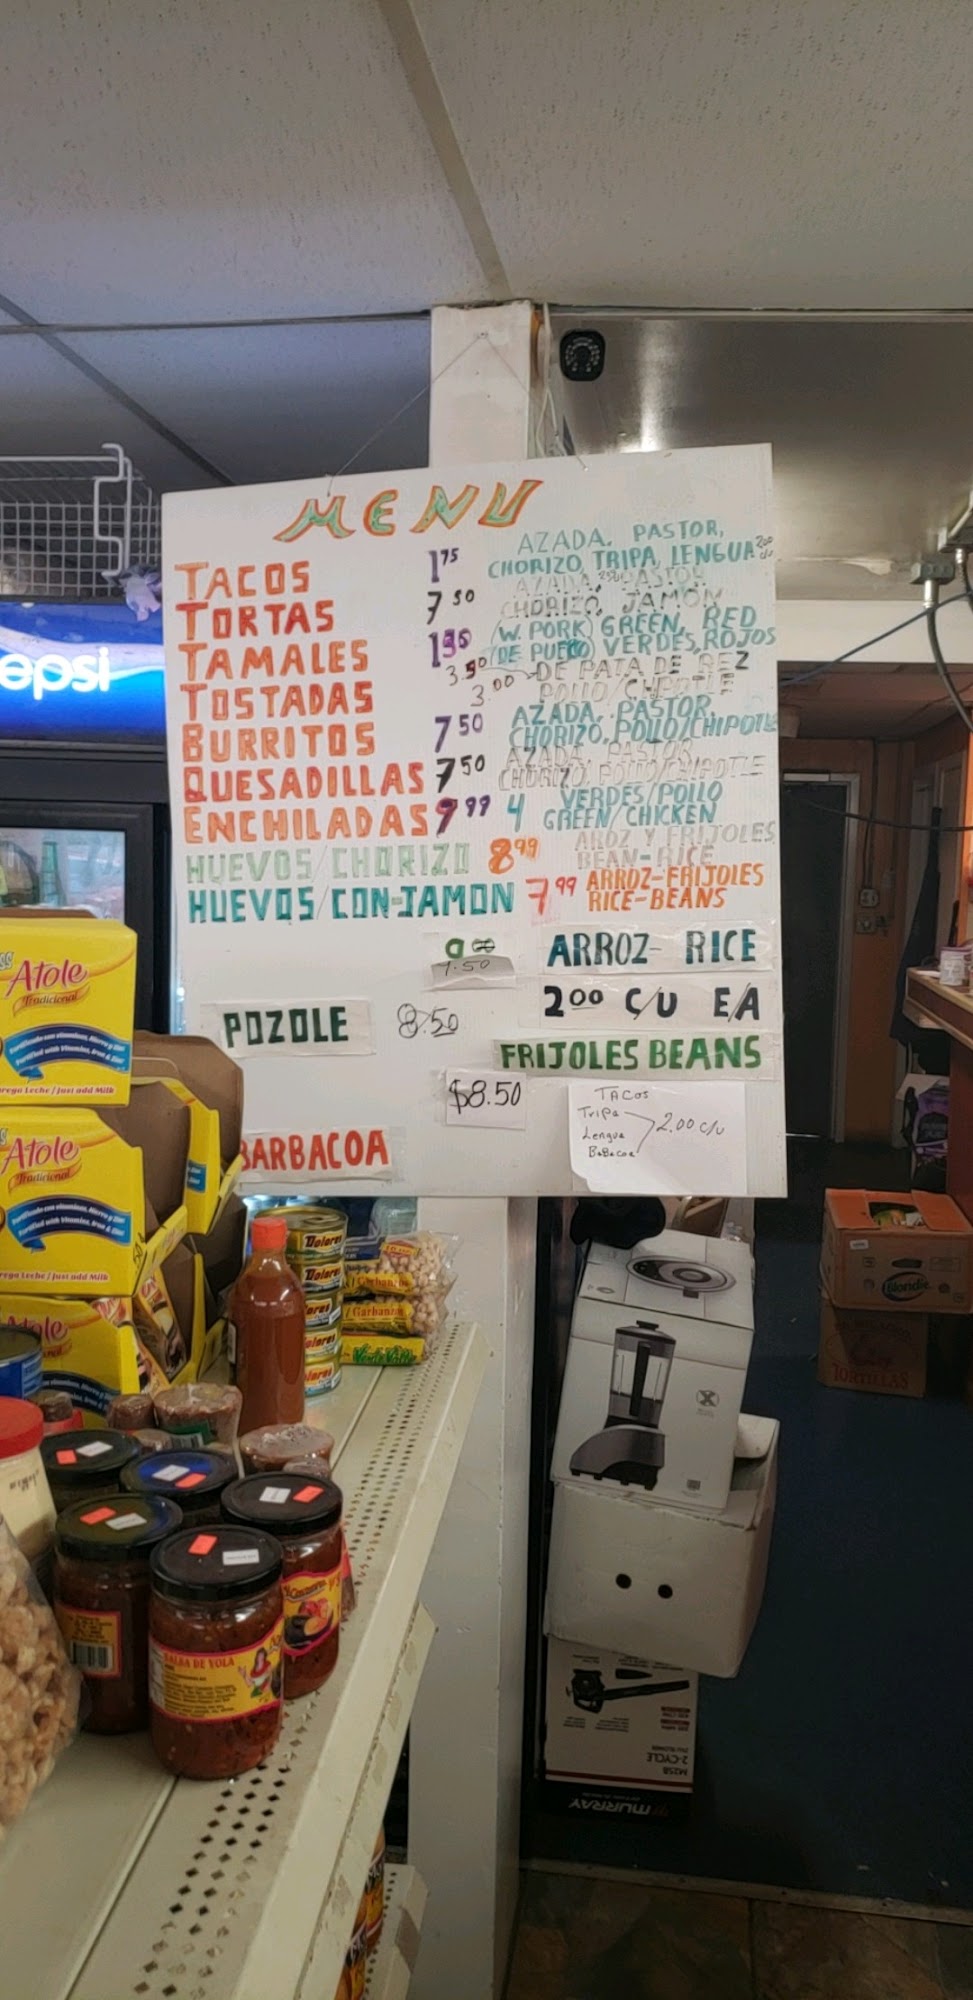 MENU
TACOS 1 75 AZADA. PASTOR,
CHORIZO, TRIPA, LENGUA 200 c/u
TORTAS 7 50 AZADA, PASTOR
CHORIZO, JAMON
TAMALES (W. PORK) GREEN, RED
DE PUERO) VERDES, ROJOS
TOSTADAS 3.50 DE PATA DE REZ
3.00 POLLO/CHIPOTLE
BURRITOS 7 50 AZADA, PASTOR,
CHORIZO, POLLO/CHIPOTLE
QUESADILLAS 7 50 AZADA, PASTOR
CHORIZO, POLLO/CHIPOTLE
ENCHILADAS 9 99 4 VERDES/POLLO
GREEN/CHICKEN
HUEVOS/CHORIZO 8 99 AROZ Y FRIJOLES
BEAN-RICE
HUEVOS/CON-JAMON 7 99 ARROZ-FRIJOLES
RICE-BEANS
ARROZ- RICE
2 00 C/U E/A
POZOLE 8.50
FRIJOLES BEANS
$8.50
BARBACOA
TACOS
Tripa
Lengua 2.00 c/u
BaBacoa
epsi
Atole
Tradicional
Atole
Tradicional
Dolores
Garbanzos
Garbanzos
Verde Valle
SALSA DE
Blondie
TORTILLAS
2-CYCLE
M25B
MURRAY